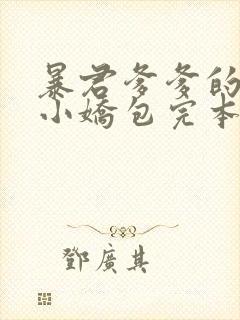 暴君爹爹的
小嬌包完本
鄧廣其